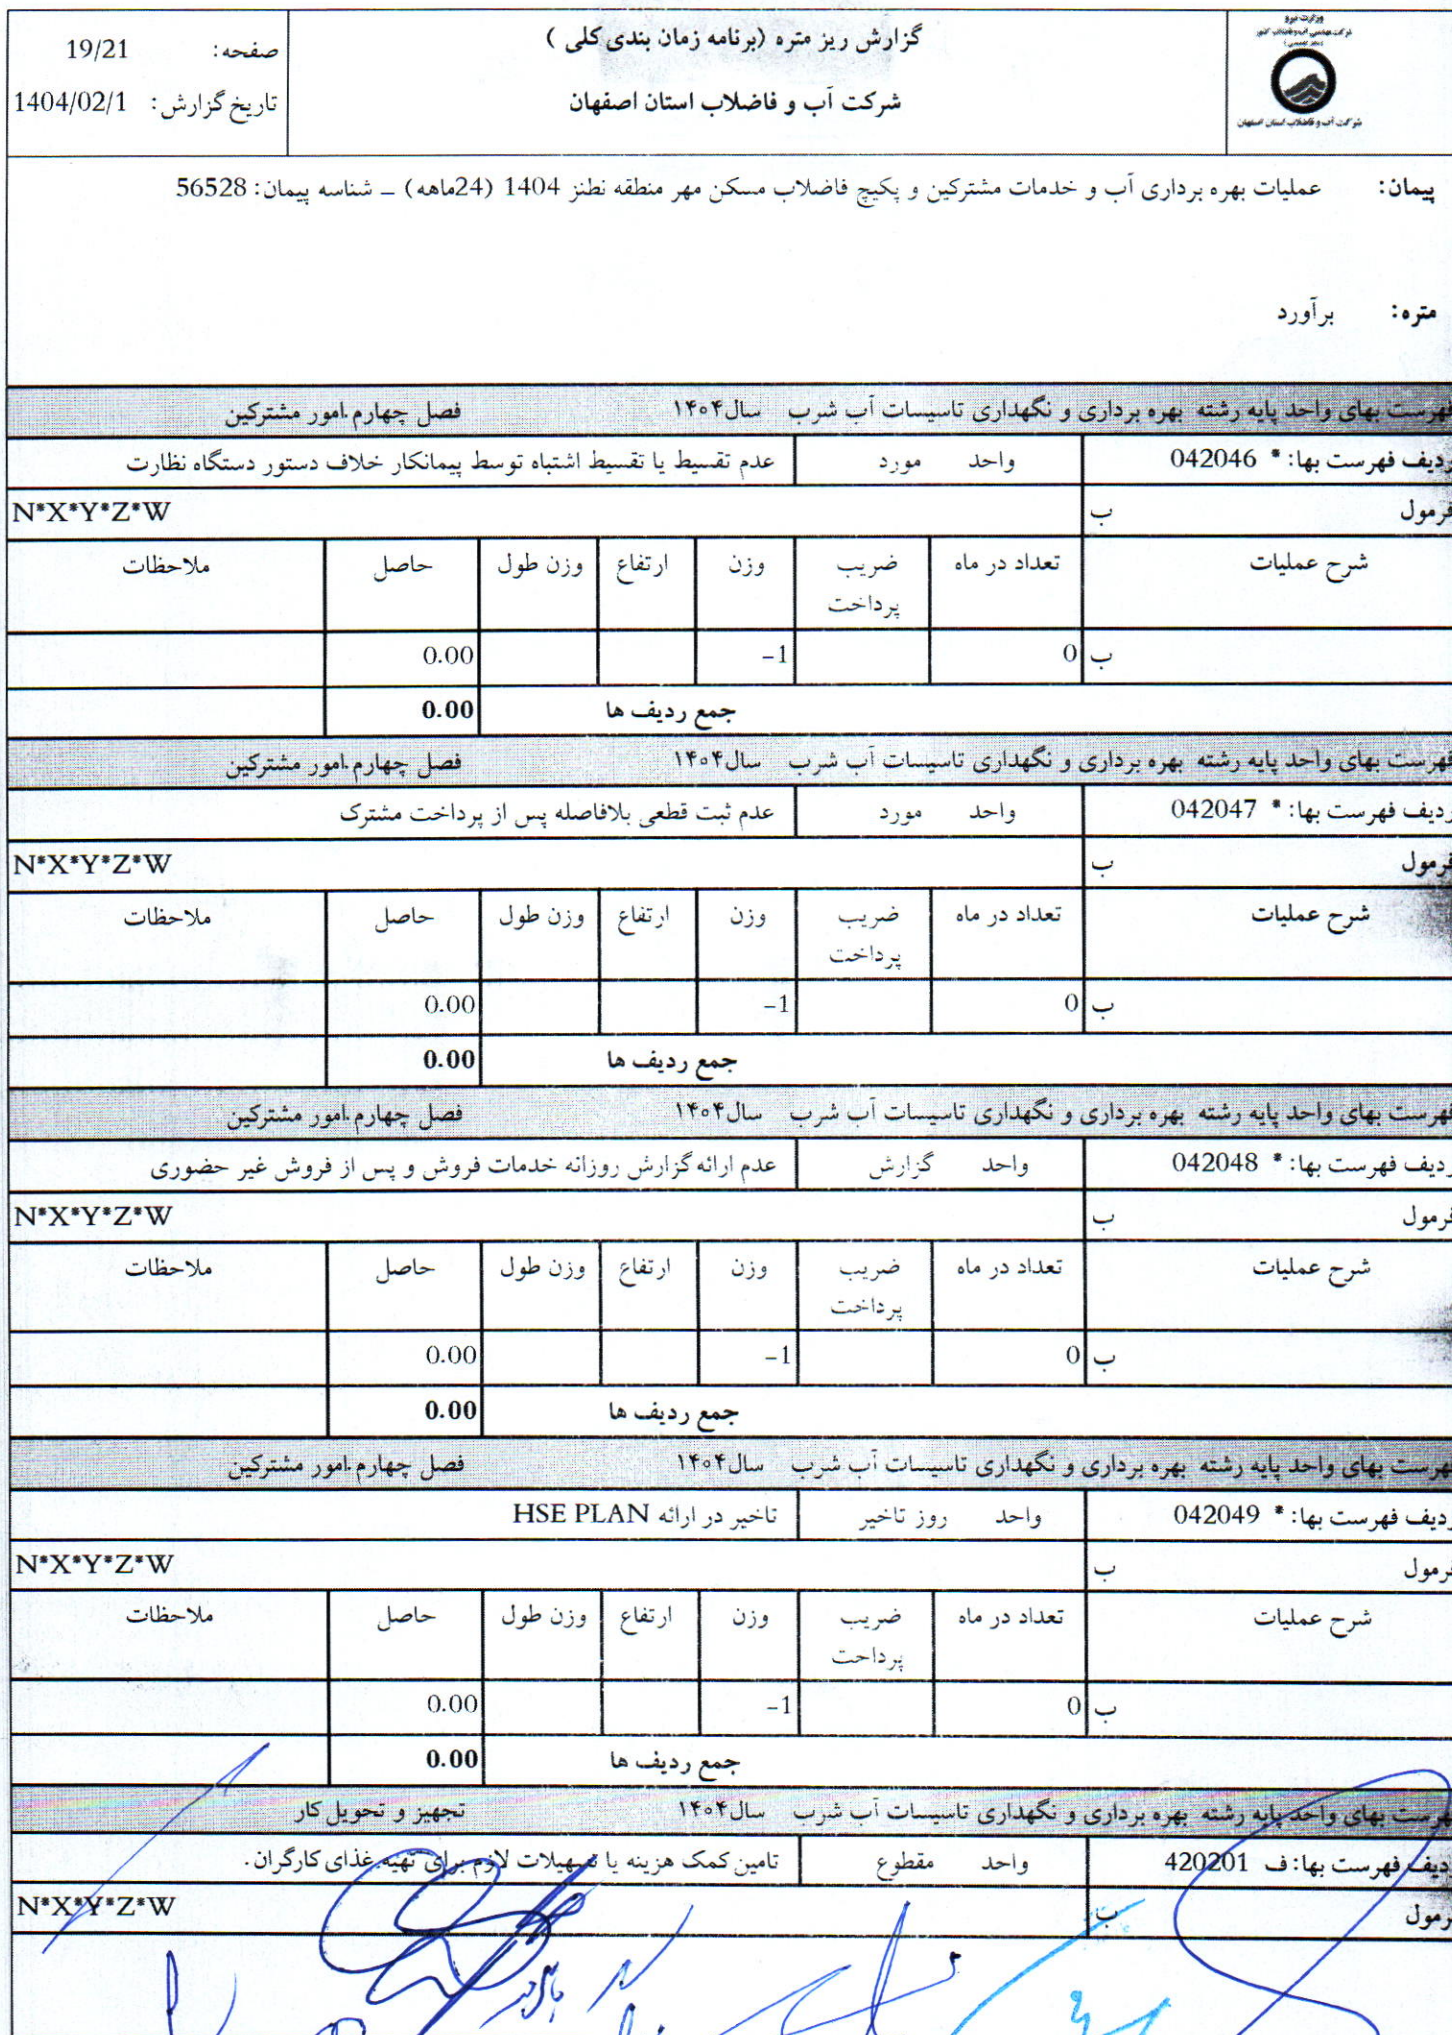 وزارت نیرو
شرکت مهندسی آب و فاضلاب کشور
شرکت آب و فاضلاب استان اصفهان
گزارش ریز متره (برنامه زمان بندی کلی )
شرکت آب و فاضلاب استان اصفهان
صفحه: 19/21
تاریخ گزارش: 1404/02/1
پیمان: عملیات بهره برداری آب و خدمات مشترکین و پکیج فاضلاب مسکن مهر منطقه نطنز 1404 (24ماهه) – شناسه پیمان: 56528
متره: برآورد
فهرست بهای واحد پایه رشته بهره برداری و نگهداری تاسیسات آب شرب سال۱۴۰۴ فصل چهارم.امور مشترکین
ردیف فهرست بها: * 042046 واحد مورد عدم تقسیط یا تقسیط اشتباه توسط پیمانکار خلاف دستور دستگاه نظارت
فرمول ب N*X*Y*Z*W
شرح عملیات تعداد در ماه ضریب پرداخت وزن ارتفاع وزن طول حاصل ملاحظات
ب 0 -1 0.00
جمع ردیف ها 0.00
فهرست بهای واحد پایه رشته بهره برداری و نگهداری تاسیسات آب شرب سال۱۴۰۴ فصل چهارم.امور مشترکین
ردیف فهرست بها: * 042047 واحد مورد عدم ثبت قطعی بلافاصله پس از پرداخت مشترک
فرمول ب N*X*Y*Z*W
شرح عملیات تعداد در ماه ضریب پرداخت وزن ارتفاع وزن طول حاصل ملاحظات
ب 0 -1 0.00
جمع ردیف ها 0.00
فهرست بهای واحد پایه رشته بهره برداری و نگهداری تاسیسات آب شرب سال۱۴۰۴ فصل چهارم.امور مشترکین
ردیف فهرست بها: * 042048 واحد گزارش عدم ارائه گزارش روزانه خدمات فروش و پس از فروش غیر حضوری
فرمول ب N*X*Y*Z*W
شرح عملیات تعداد در ماه ضریب پرداخت وزن ارتفاع وزن طول حاصل ملاحظات
ب 0 -1 0.00
جمع ردیف ها 0.00
فهرست بهای واحد پایه رشته بهره برداری و نگهداری تاسیسات آب شرب سال۱۴۰۴ فصل چهارم.امور مشترکین
ردیف فهرست بها: * 042049 واحد روز تاخیر تاخیر در ارائه HSE PLAN
فرمول ب N*X*Y*Z*W
شرح عملیات تعداد در ماه ضریب پرداخت وزن ارتفاع وزن طول حاصل ملاحظات
ب 0 -1 0.00
جمع ردیف ها 0.00
فهرست بهای واحد پایه رشته بهره برداری و نگهداری تاسیسات آب شرب سال۱۴۰۴ تجهیز و تحویل کار
ردیف فهرست بها: ف 420201 واحد مقطوع تامین کمک هزینه یا تسهیلات لازم برای تهیه غذای کارگران.
فرمول ب N*X*Y*Z*W